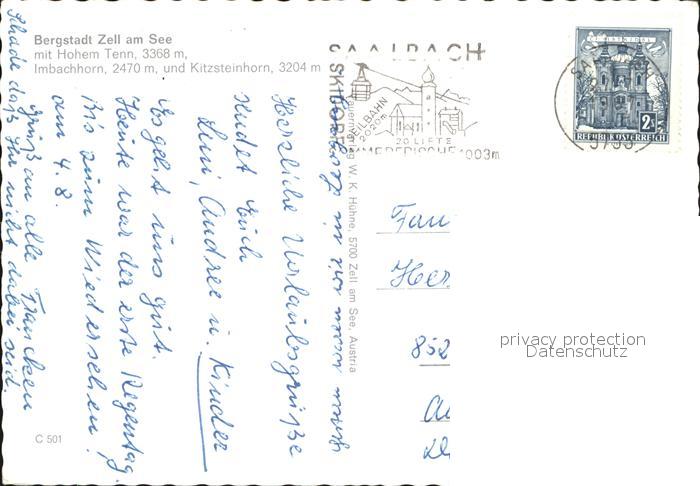 Bergstadt Zell am See
mit Hohem Tenn, 3368 m,
Imbachhorn, 2470 m, und Kitzsteinhorn, 3204 m
SAALBACH
SKIDORF
SEILBAHN
2020m
20 LIFTE
SOMMERFRISCHE 1003m
2S
REPUBLIK ÖSTERREICH
W. K. Hühne, 5700 Zell am See, Austria
Herzliche Urlaubsgrüße
sendet Euch
Leni, Andree u. Kinder
Es geht uns gut.
Heute war der erste Regentag.
Bis zum Wiedersehen!
am 4.8.
Gruß an alle Francken
Schade daß Ihr nicht dabei seid.
Fam
Her
852
privacy protection
Datenschutz
C 501